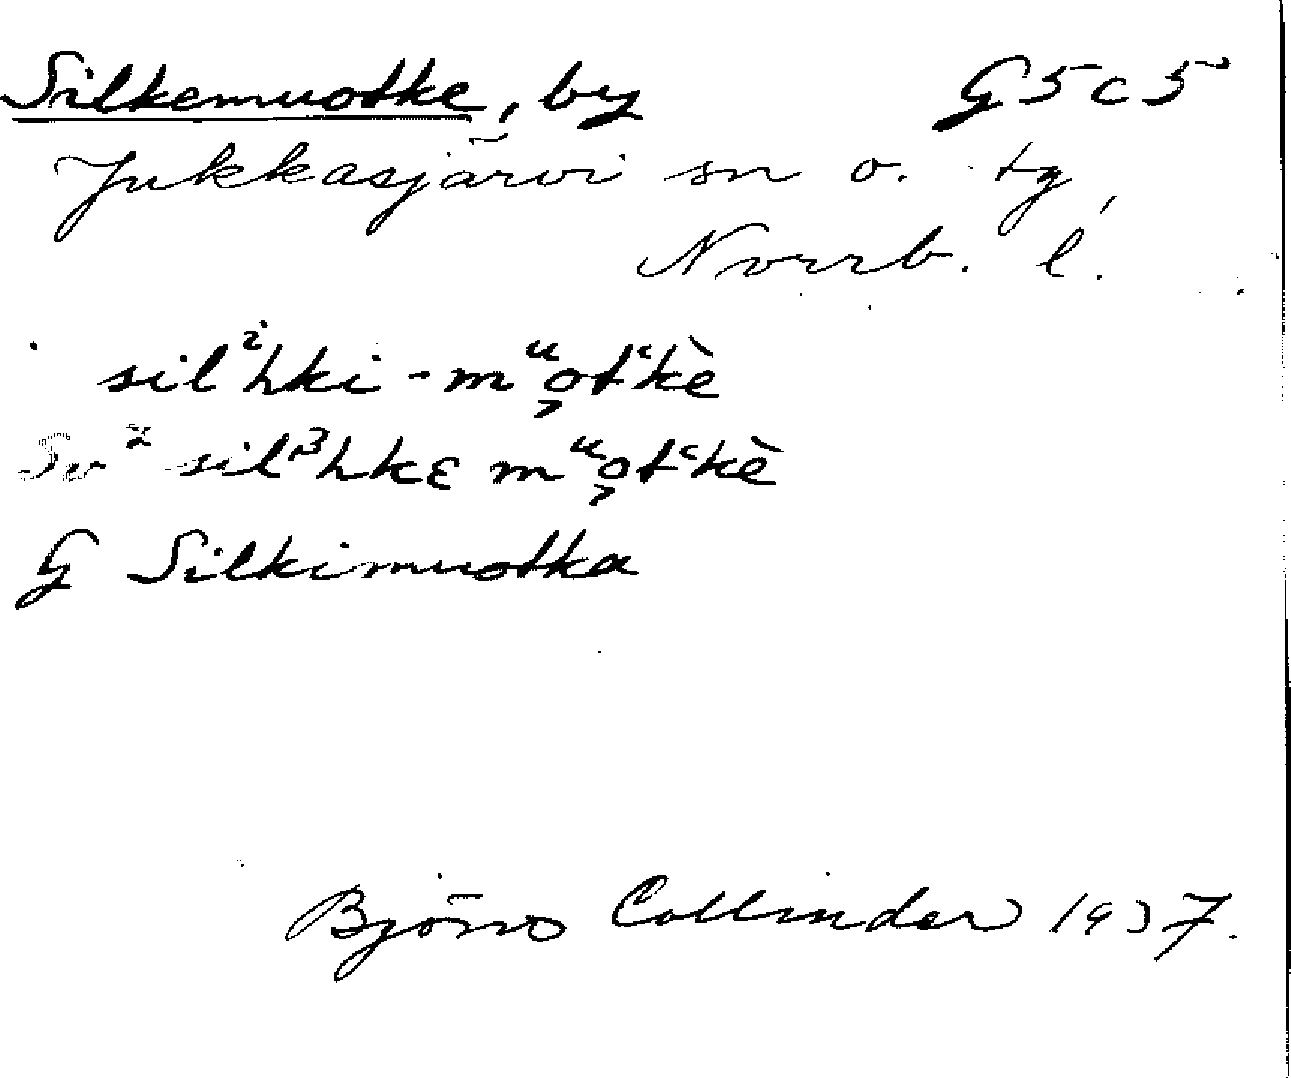 Silkemuotke, by G5c5
Jukkasjärvi sn o. tg,
Norrb. l.
silⁱhki-mᵘo̧t‘kè
Sv² silᵌhkɛ mᵘo̧t‘kè
G Silkimuotka
Björn Collinder 1937.